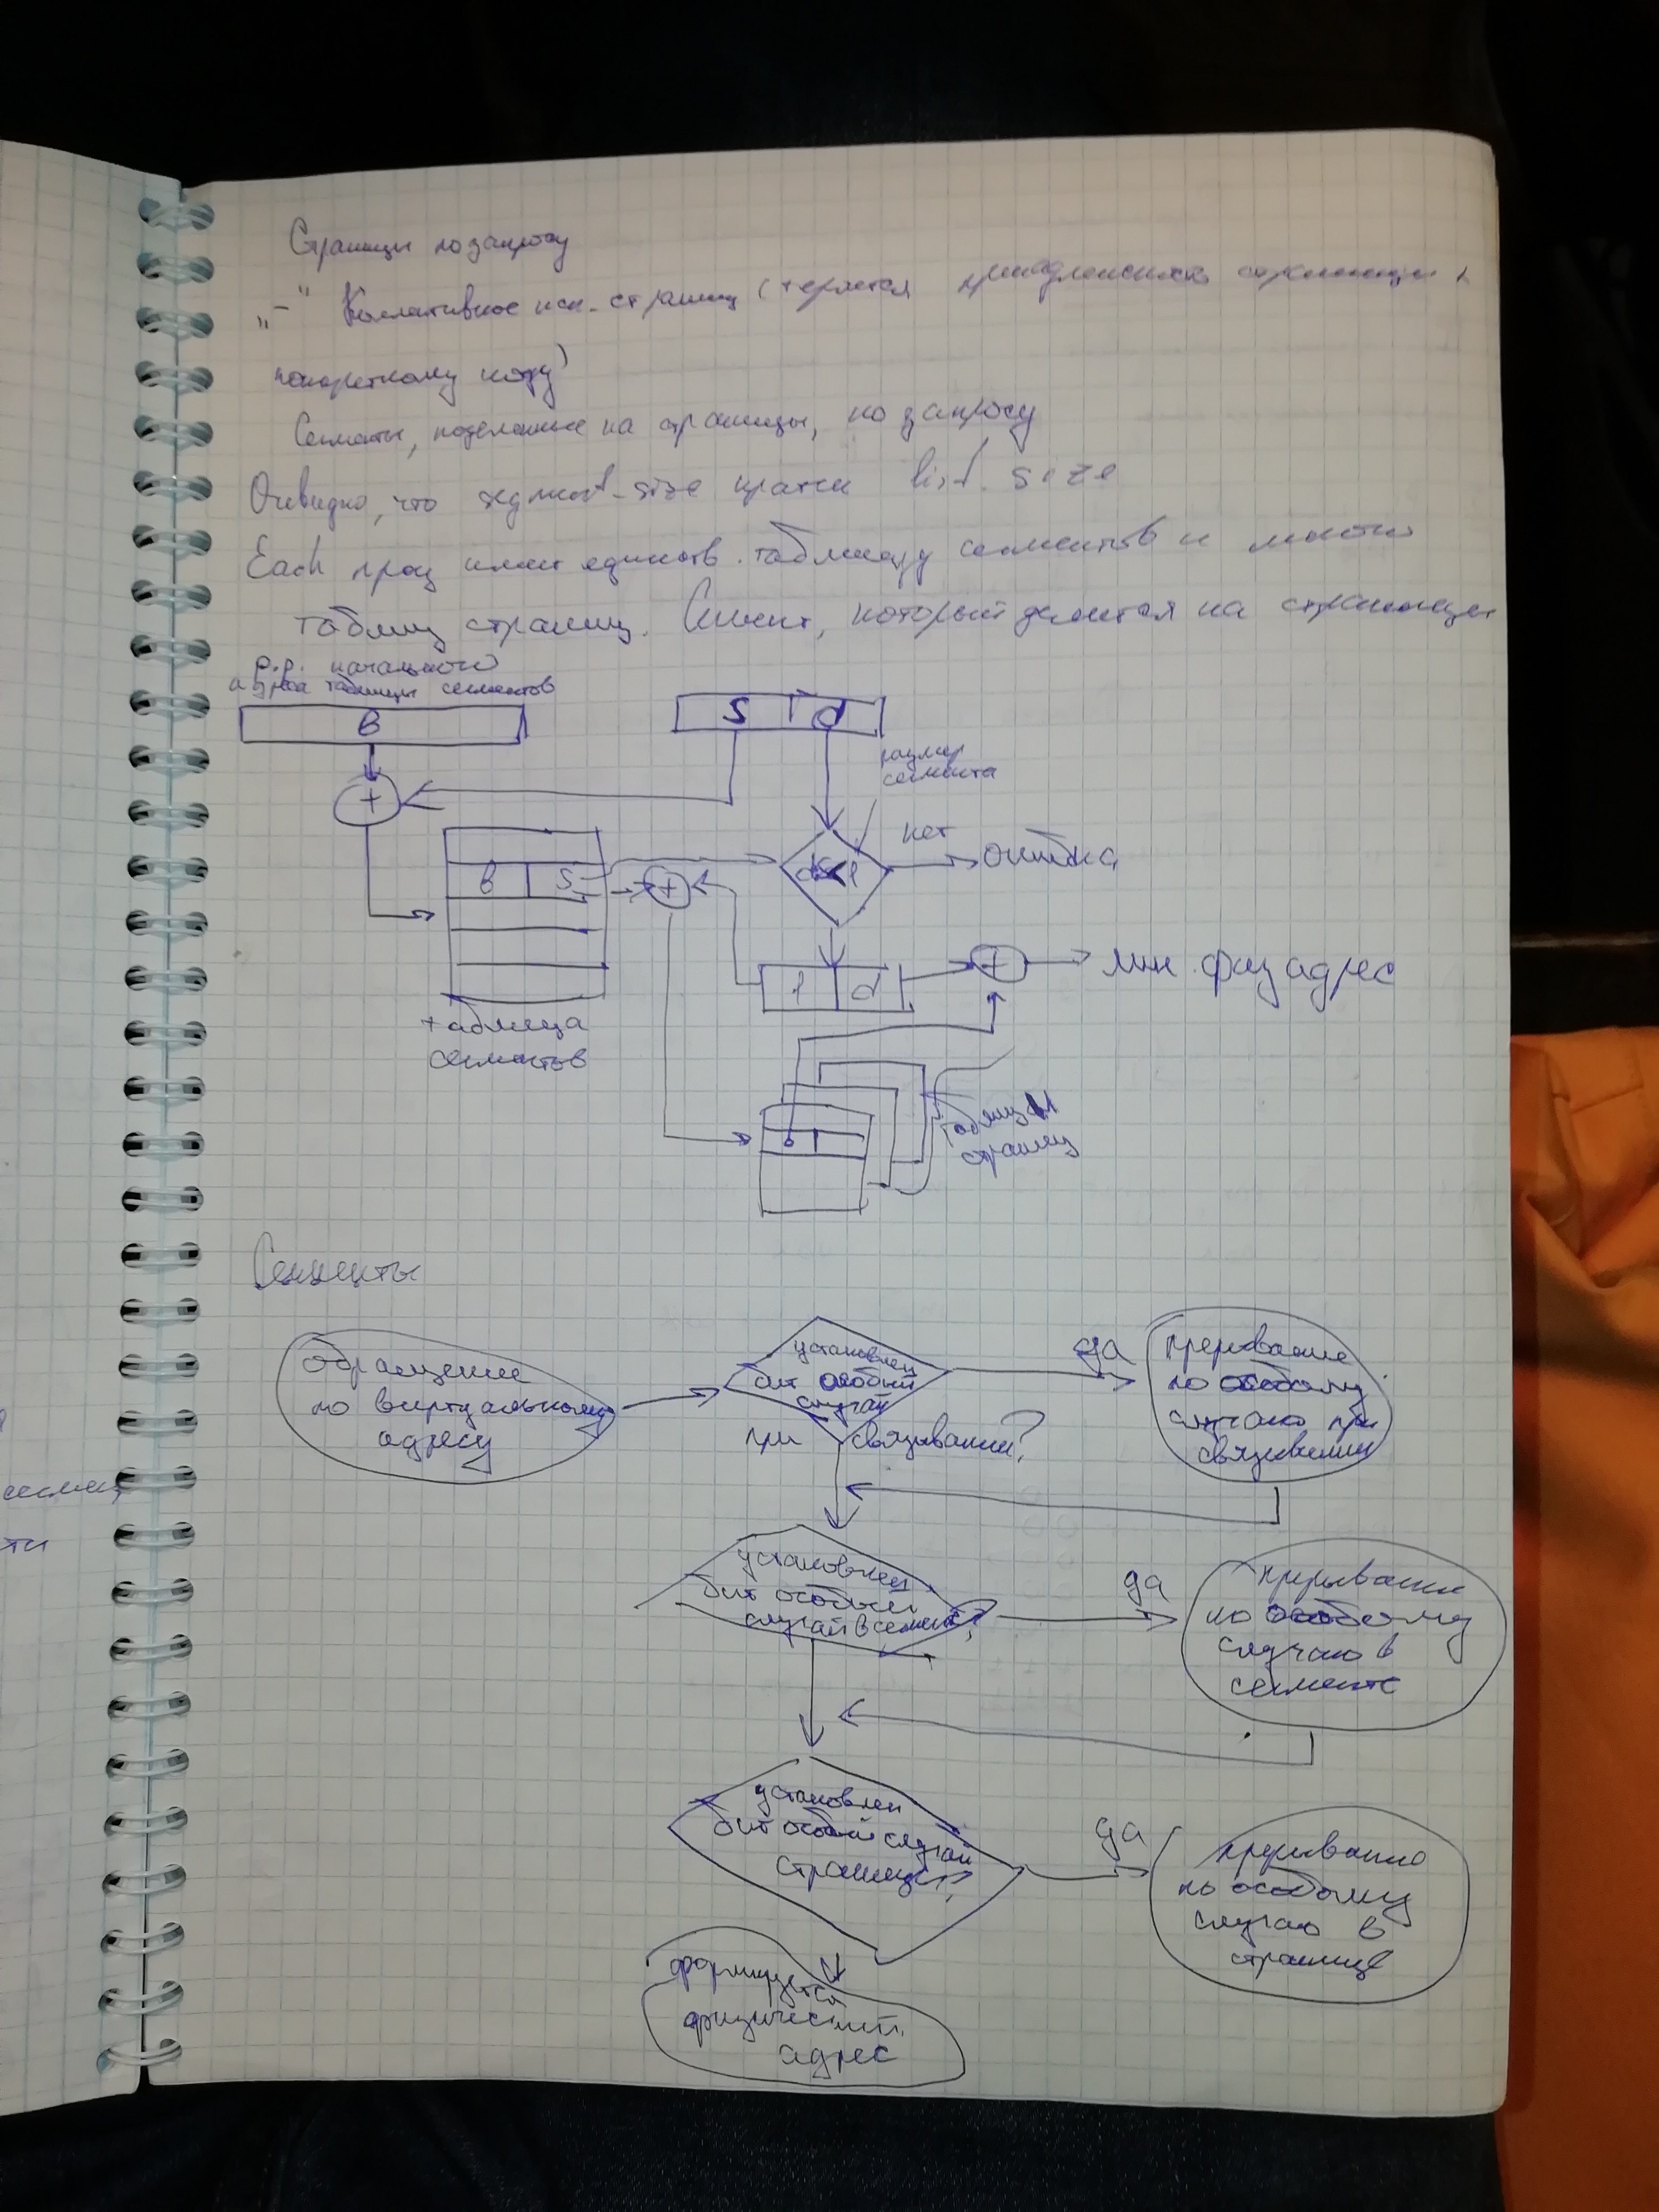 Страницы по запросу
„–" Коллективное исп. страниц (теряется принадлежность страницы к
конкретному коду)
Сегменты, поделенные на страницы, по запросу
Очевидно, что segment-size кратен list. size
Each проц имеет единств. таблицу сегментов и много
таблиц страниц. Сегмент, который делится на страницы
р.р. начального
адреса таблицы сегментов
B
S d
размер
сегмента
+
нет
ошибка
b S
+
p d
+
лин. физ адрес
таблица
сегментов
таблицы
страниц
b
Сегменты
обращение
по виртуальному
адресу
установлен
бит особый
случай
при связывании?
да
прерывание
по особому
случаю при
связывании
установлен
бит особый
случай в сегменте?
да
прерывание
по особому
случаю в
сегменте
установлен
бит особый случай
страницы?
да
прерывание
по особому
случаю в
странице
формируется
физический
адрес
сегмен
ти